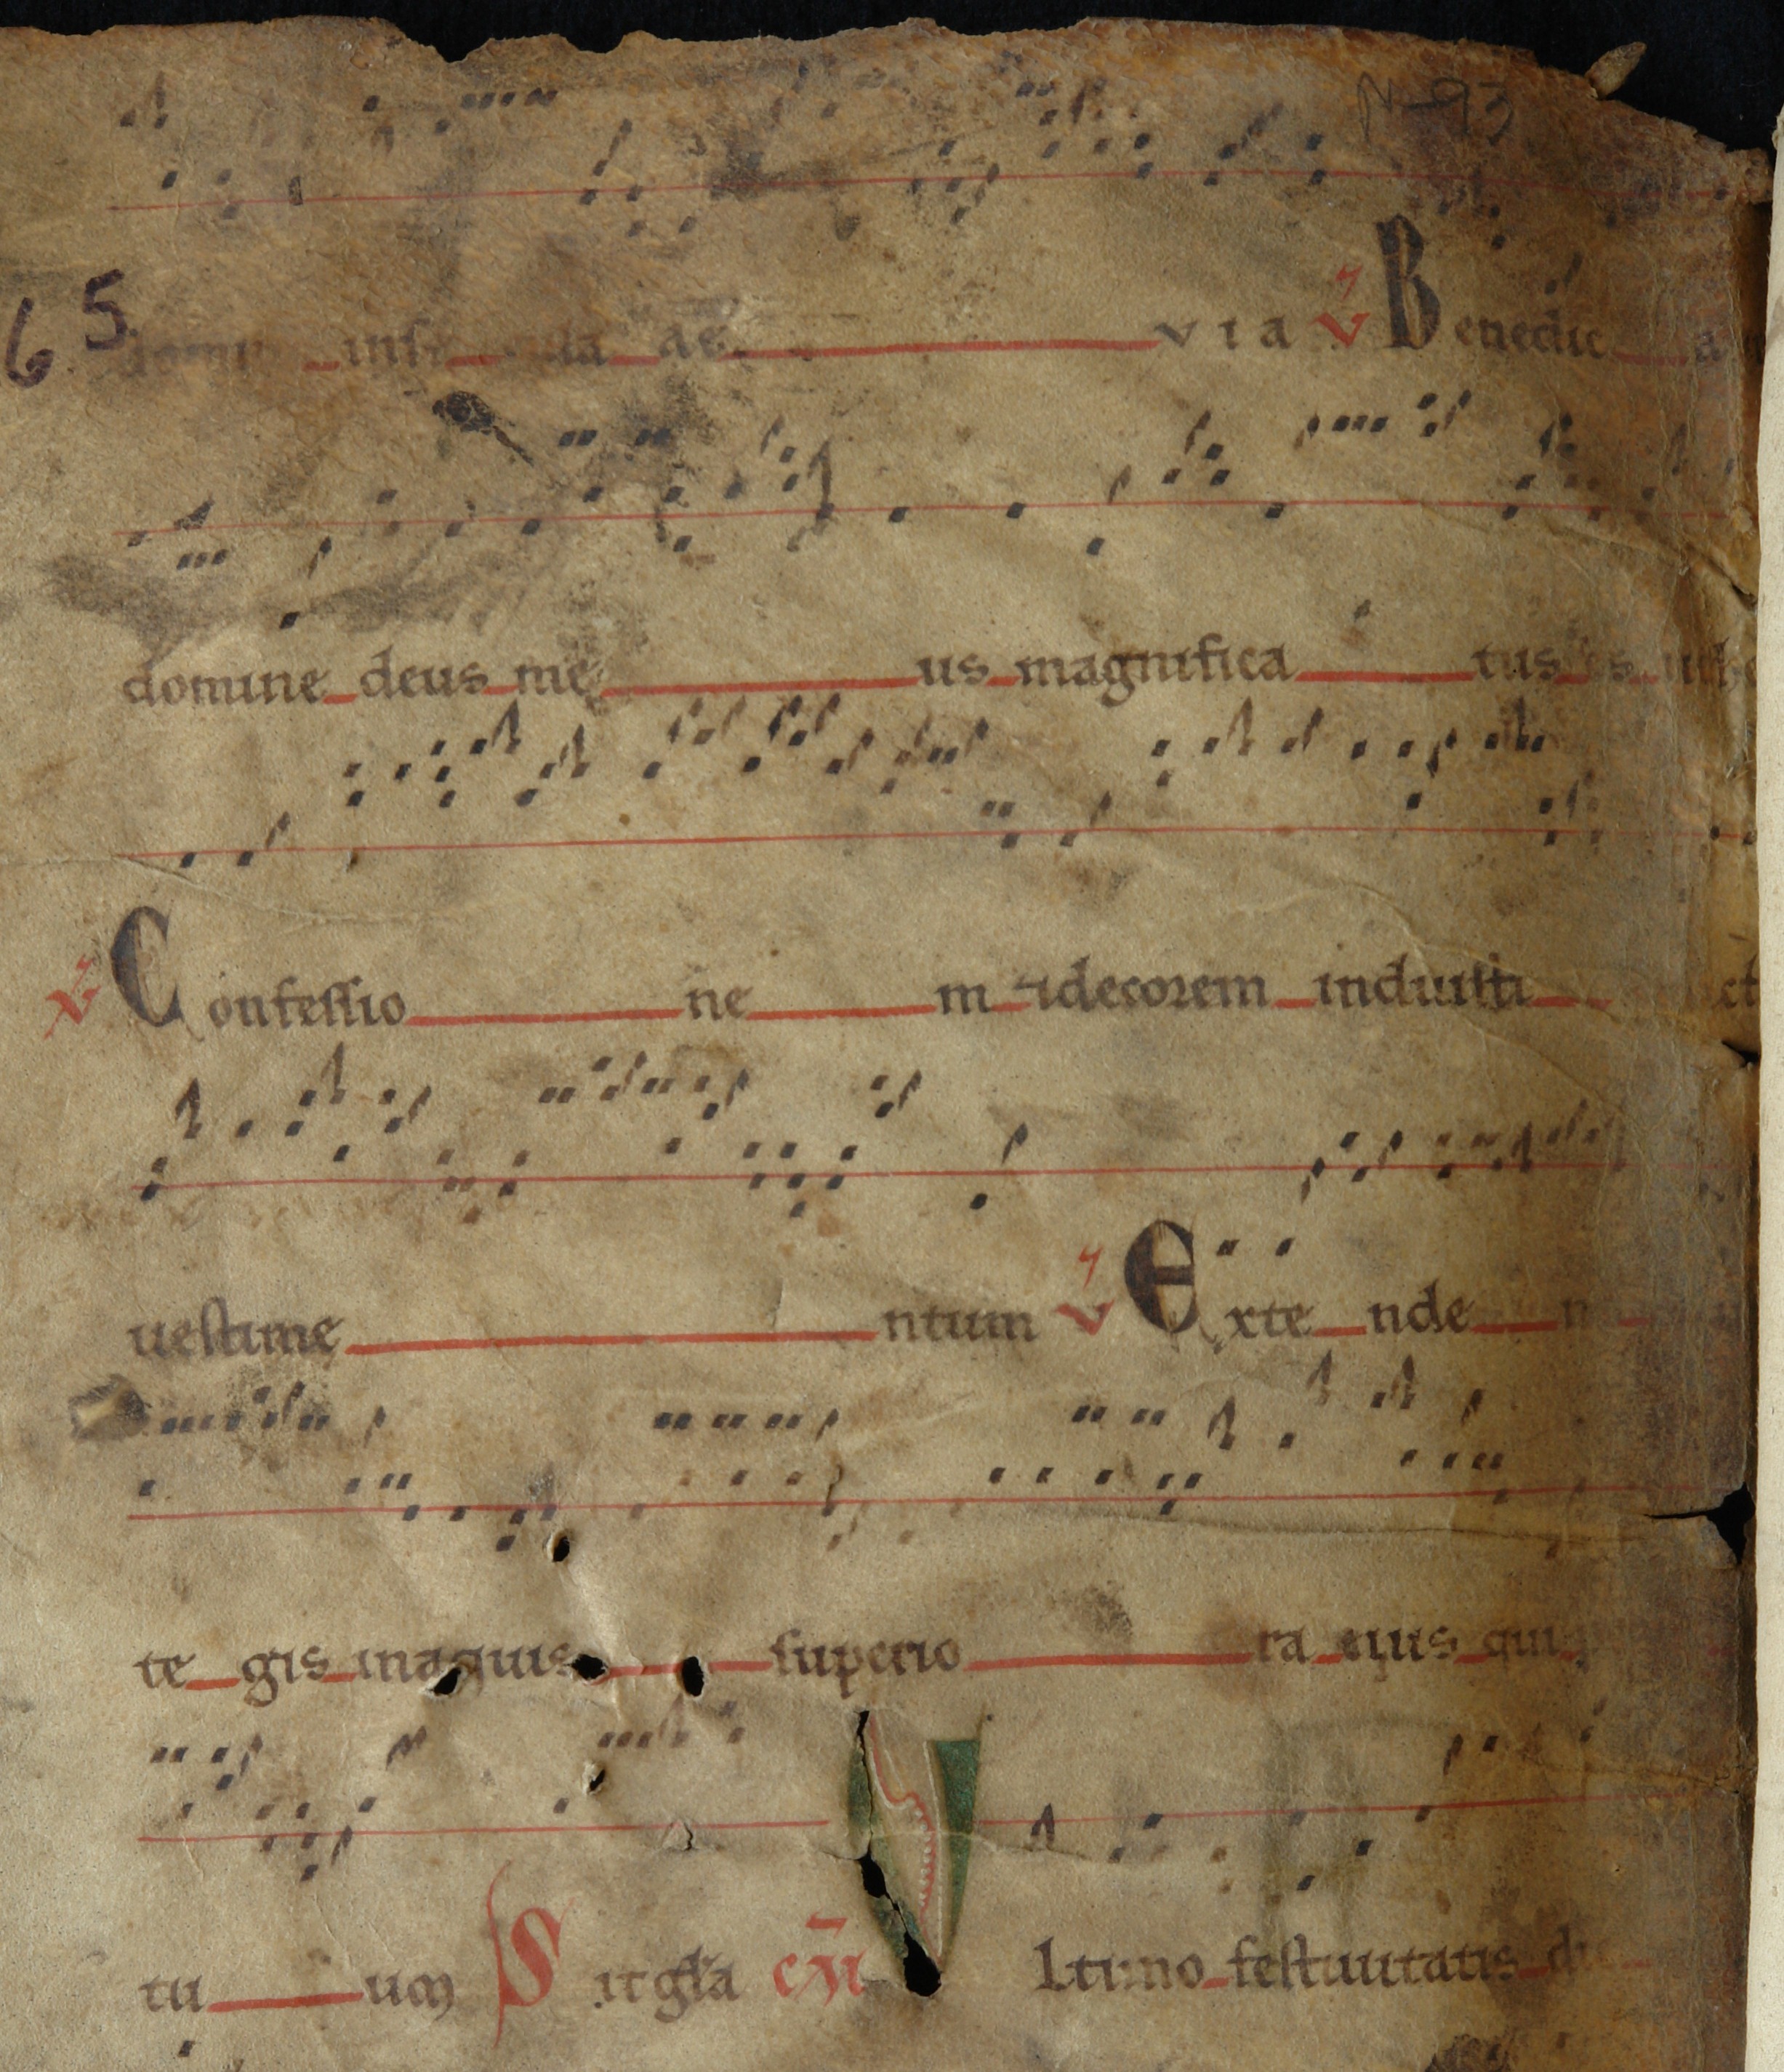 N-93
65
ae via ℣ Benedic a
domine deus me us magnifica tus es
℣ Confessio ne m et decorem induisti et
uestime ntum ℣ Exte nde n
te gis in aquis superio ra eius qui
tu um Sit gła co͞i Vltimo festiuitatis